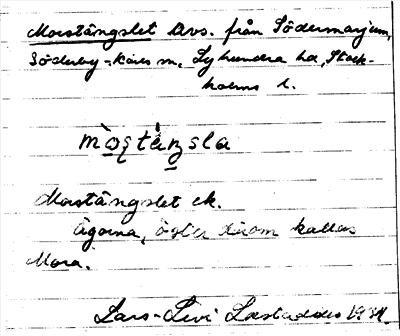 Morstängslet Avs. från Södermarjum,
Söderby-Karls sn, Lyhundra hd, Stock-
holms l.
mòstàŋsla
Morstängslet ek.
ägorna, öster därom kallas
Mora.
Lars-Levi Læstadius 1934.